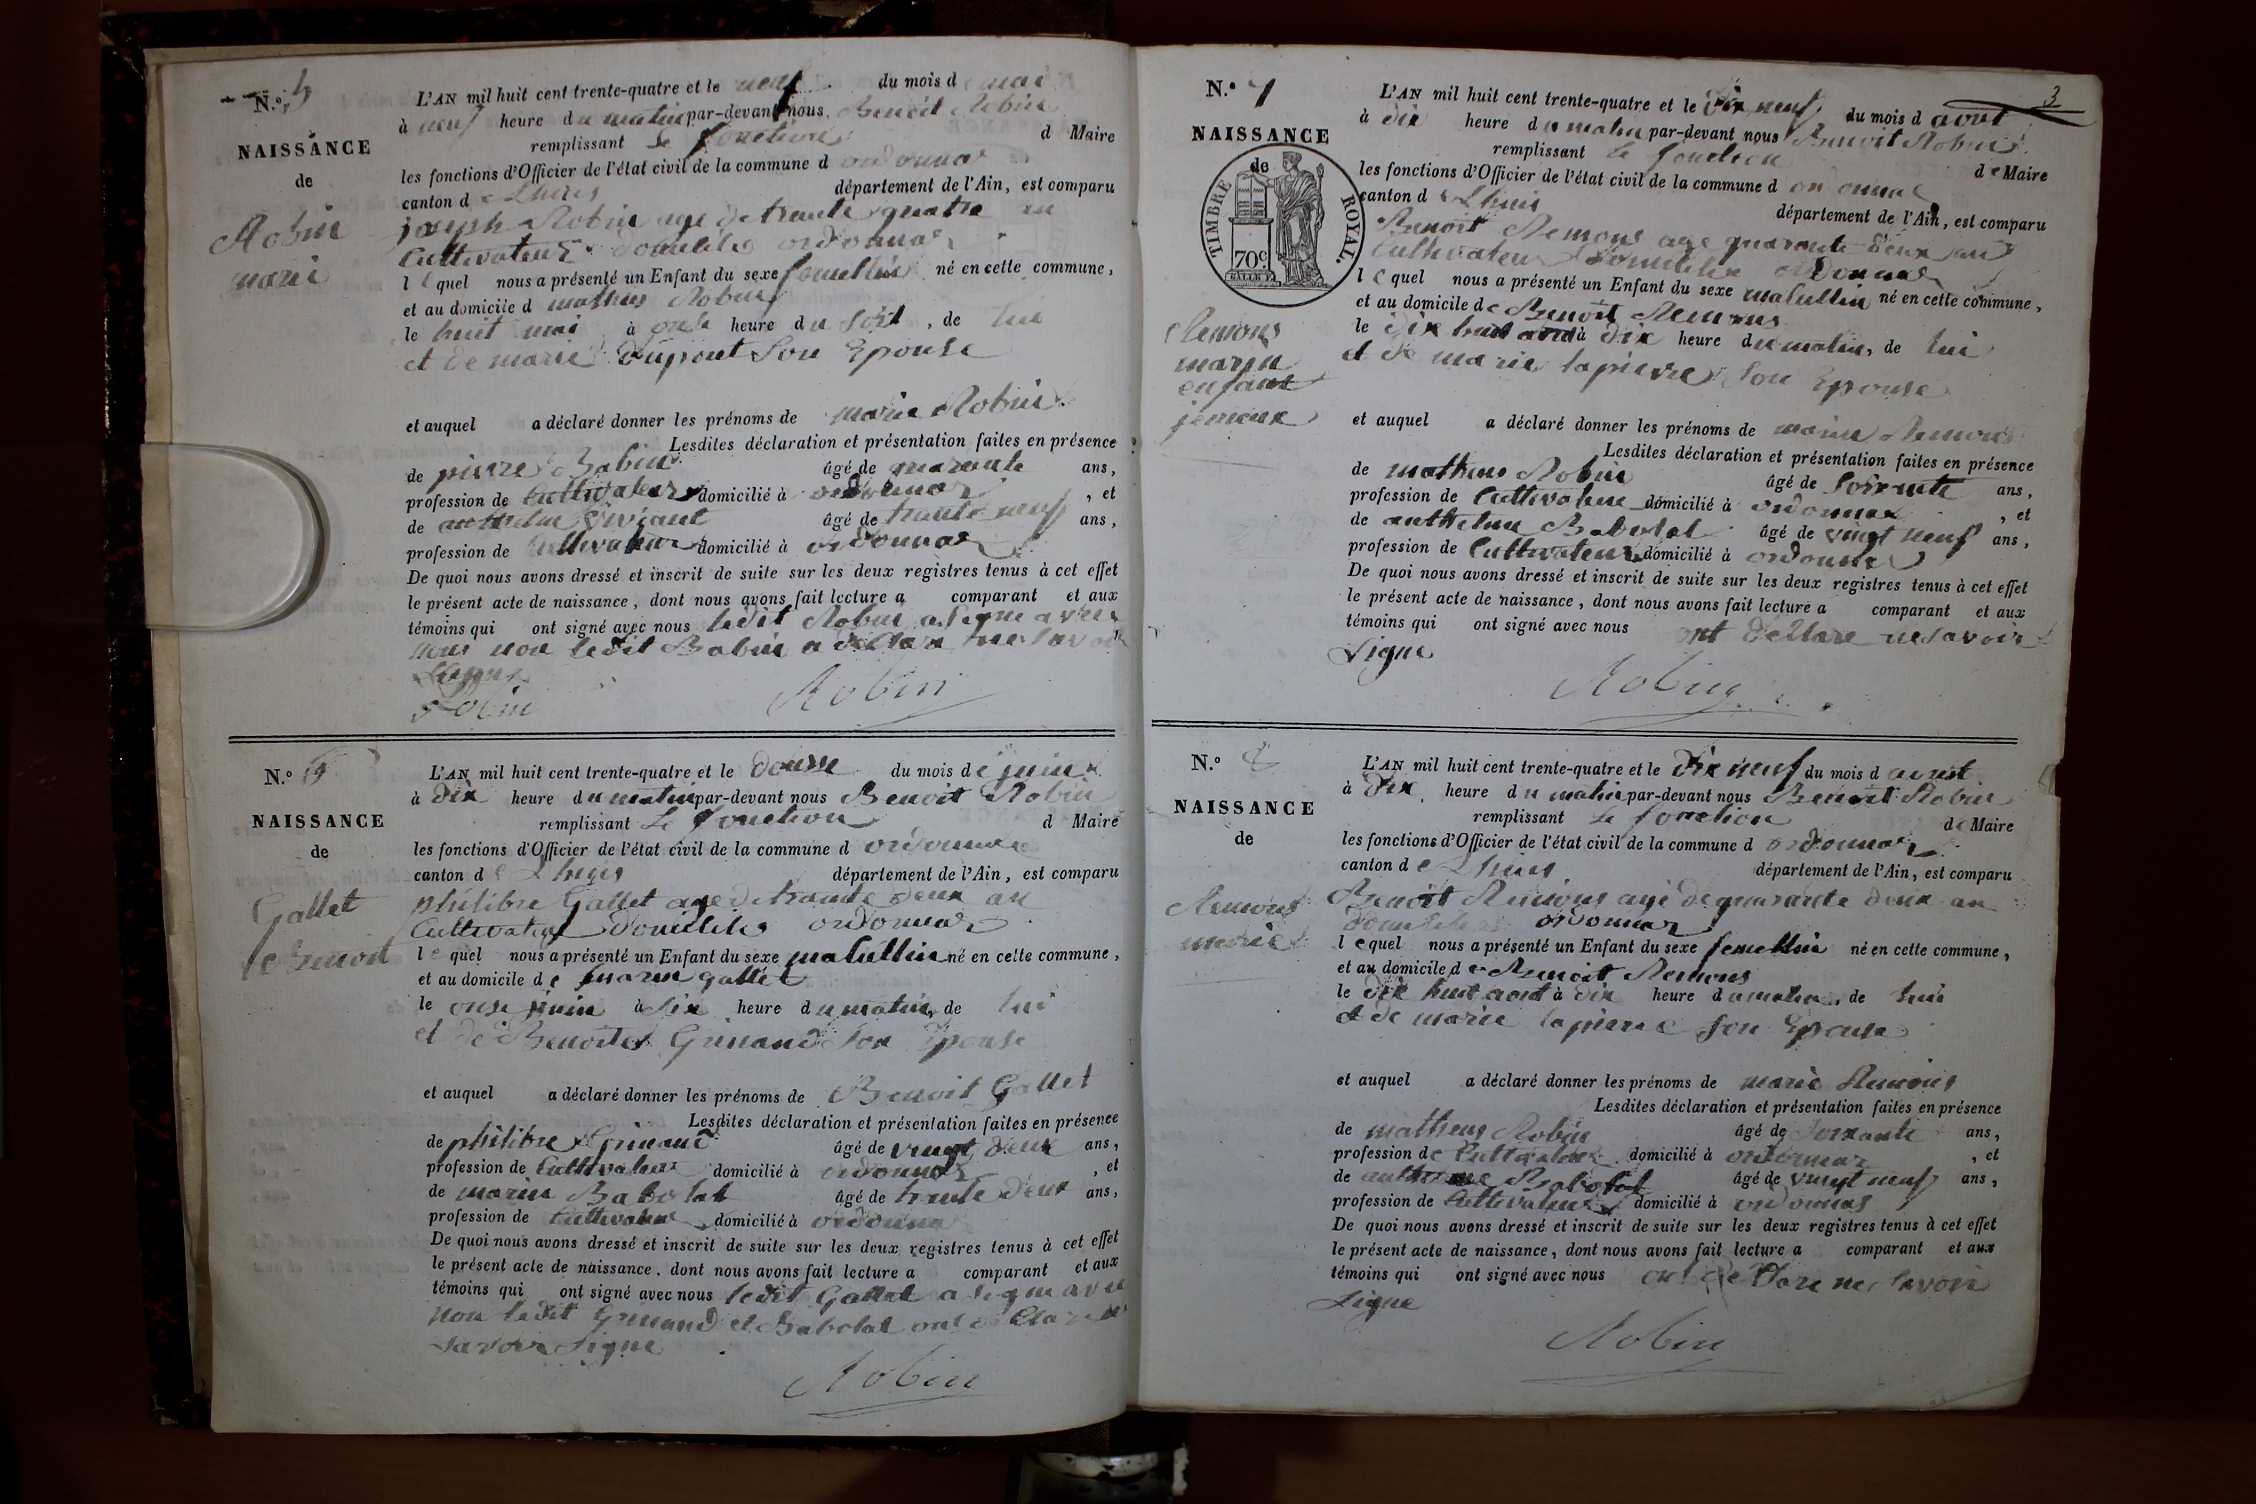 N.o 5
NAISSANCE
de
Robin
marie
L'AN mil huit cent trente-quatre et le neuf du mois de mai
à neuf heure du matin par-devant nous Benoit Robin
remplissant le fonction d Maire
les fonctions d'Officier de l'état civil de la commune d ordonnas
canton de Lhuis département de l'Ain, est comparu
joseph Robin age de trante quatre an
Cultivateur domicilie ordonnas
lequel nous a présenté un Enfant du sexe femellin né en cette commune,
et au domicile d mathieu Robin
le huit mai à onze heure du soir, de lui
et de marie Dupont Son Epouse
et auquel a déclaré donner les prénoms de marie Robin
Lesdites déclaration et présentation faites en présence
de pierre Babin âgé de quarante ans,
profession de Cultivateur domicilié à ordonnas, et
de anthelme Viviant âgé de trante neuf ans,
profession de Cultivateur domicilié à ordonnas
De quoi nous avons dressé et inscrit de suite sur les deux registres tenus à cet effet
le présent acte de naissance, dont nous avons fait lecture a comparant et aux
témoins qui ont signé avec nous ledit Robin a signe avec
nous non ledit Babin a declare ne savoir
Signe
Robin Robin
N.o 6
NAISSANCE
de
Gallet
Benoit
L'AN mil huit cent trente-quatre et le douse du mois de juin
à dix heure du matin par-devant nous Benoit Robin
remplissant le fonction d Maire
les fonctions d'Officier de l'état civil de la commune d ordonnas
canton de Lhuis département de l'Ain, est comparu
philibre Gallet age de trante deux an
Cultivateur domicilie ordonnas
lequel nous a présenté un Enfant du sexe maSullin né en cette commune,
et au domicile de marin gallet
le onse juin à six heure du matin, de lui
et de Benoite Grinand Son Epouse
et auquel a déclaré donner les prénoms de Benoit Gallet
Lesdites déclaration et présentation faites en présence
de philibre Grinand âgé de vingt deux ans,
profession de Cultivateur domicilié à ordonnas, et
de marin Babolat âgé de trante deux ans,
profession de Cultivateur domicilié à ordonnas
De quoi nous avons dressé et inscrit de suite sur les deux registres tenus à cet effet
le présent acte de naissance, dont nous avons fait lecture a comparant et aux
témoins qui ont signé avec nous ledit Gallet a signe avec
nou ledit Grinand et Babolat ont declare ne
savoir Signe
Robin
3
N.o 7
NAISSANCE
de
TIMBRE ROYAL.
70c.
Remons
marin
enfant
jemeux
L'AN mil huit cent trente-quatre et le Dix neuf du mois d aout
à dix heure du matin par-devant nous Benoit Robin
remplissant le fonction de Maire
les fonctions d'Officier de l'état civil de la commune d ordonnas
canton de Lhuis département de l'Ain, est comparu
Benoit Remons age quarante deux an
Cultivateur domicilie ordonnas
lequel nous a présenté un Enfant du sexe maSullin né en cette commune,
et au domicile de Benoit Remons
le dix huit aout à dix heure du matin, de lui
et de marie lapierre Son Epouse
et auquel a déclaré donner les prénoms de marin Remons
Lesdites déclaration et présentation faites en présence
de mathieu Robin âgé de Soixante ans,
profession de Cultivateur domicilié à ordonnas, et
de anthelme Babolat âgé de vingt neuf ans,
profession de Cultivateur domicilié à ordonnas
De quoi nous avons dressé et inscrit de suite sur les deux registres tenus à cet effet
le présent acte de naissance, dont nous avons fait lecture a comparant et aux
témoins qui ont signé avec nous ont declare ne savoir
Signe
Robin
N.o 8
NAISSANCE
de
Remons
marie
L'AN mil huit cent trente-quatre et le Dix neuf du mois d aoust
à Dix heure du matin par-devant nous Benoit Robin
remplissant le fonction de Maire
les fonctions d'Officier de l'état civil de la commune d ordonnas
canton de Lhuis département de l'Ain, est comparu
Benoit Remons age de quarante deux an
domicilie ordonnas
lequel nous a présenté un Enfant du sexe femellin né en cette commune,
et au domicile de Benoit Remons
le dix huit aout à dix heure du matin, de lui
et de marie lapierre Son Epouse
et auquel a déclaré donner les prénoms de marie Remons
Lesdites déclaration et présentation faites en présence
de mathieu Robin âgé de Soixante ans,
profession de Cultivateur domicilié à ordonnas, et
de anthelme Babolat âgé de vingt neuf ans,
profession de Cultivateur domicilié à ordonnas
De quoi nous avons dressé et inscrit de suite sur les deux registres tenus à cet effet
le présent acte de naissance, dont nous avons fait lecture a comparant et aux
témoins qui ont signé avec nous ont declare ne savoir
Signe
Robin